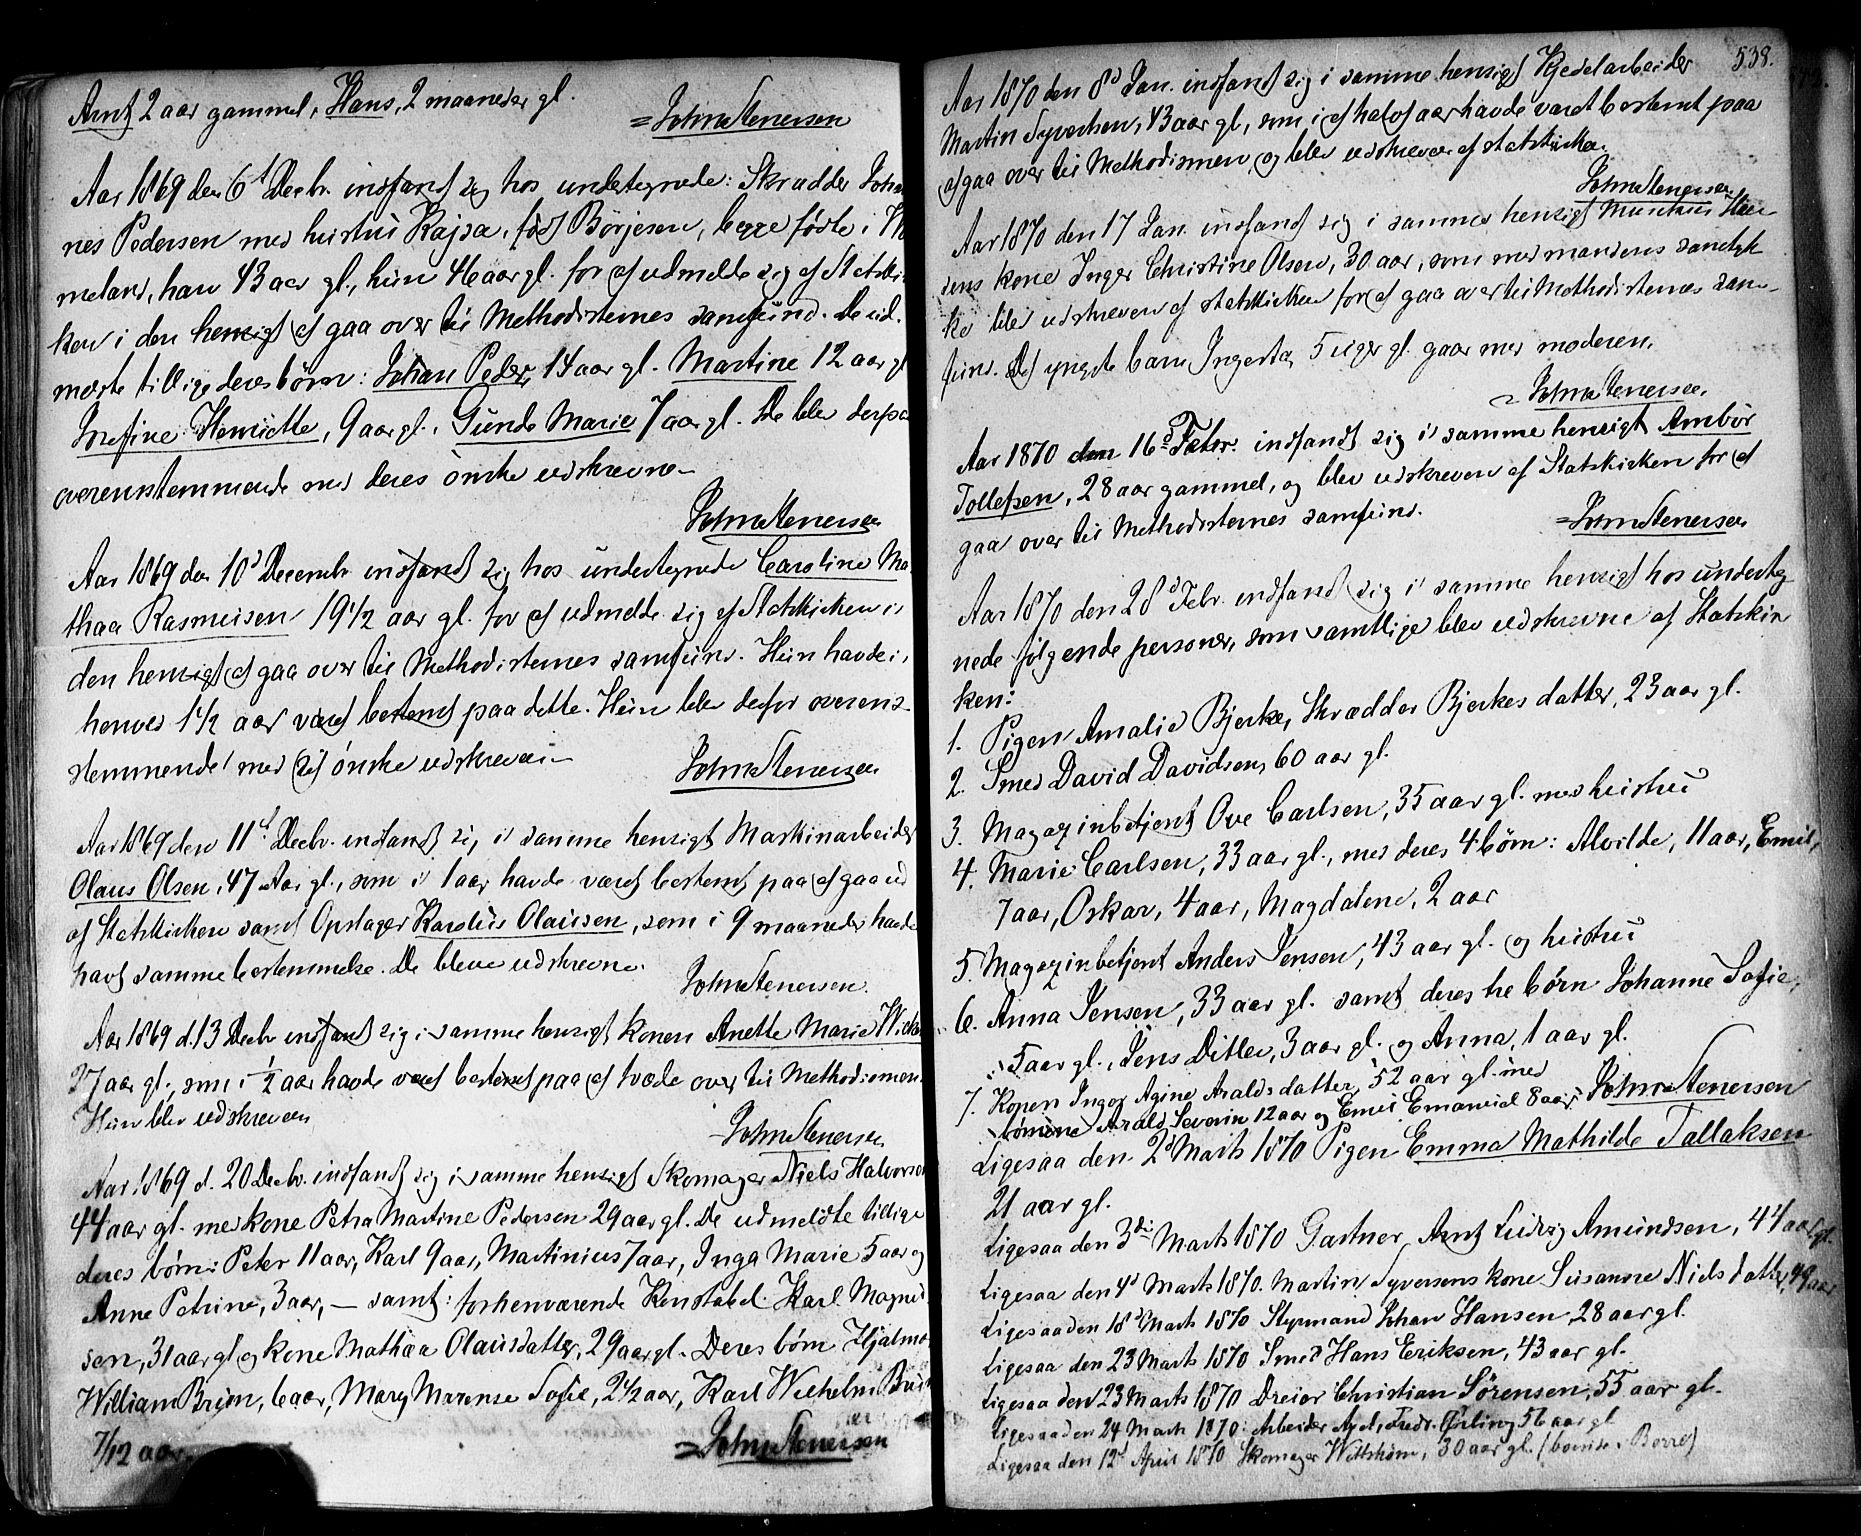 Arnt 2 aar gammel, Hans, 2 maaneder gl.
=Johm Stenersen
Aar 1869 den 6t Decbr. indfandt sig hos undertegnede: Skrædder Johan
nes Pedersen med hustru Kajsa, født Børjesen, begge fødte i
meland, han 43 aar gl., hun 46 aar gl. for at udmelde sig af Statskir
ken i den hensigt at gaa over til Methodisternes samfund. De ud-
meldte tillige deres børn: Johan Peder, 14 aar gl. Martine 12 aar gl
Josefine Henriette, 9 aar gl., Gunde Marie 7 aar gl. De blev derpaa
overensstemmende med deres ønske udskrevne.
Johm Stenersen
Aar 1869 den 10d Decembr indfandt sig hos undertegnede Caroline Ma
thea Rasmussen 19 1/2 aar gl. for at udmelde sig af Statskirken i
den hensigt at gaa over til Methodisternes samfund. Hun havde i
henved 1 1/2 aar været bestemt paa dette. Hun blev derfor overens-
stemmende med sit ønske udskreven.
Johm Stenersen
Aar 1869 den 11t Decbr. indfandt sig i samme hensigt Maskinarbeider
Olaus Olsen, 47 Aar gl., som i 1 aar havde været bestemt paa at gaa ud
af Statskirken samt Opslager Karolius Olaussen, som i 9 maaneder havde
havt samme bestemmelse. De bleve udskrevne.
Johm Stenersen.
Aar 1869 d. 13 Decbr indfandt sig i samme hensigt konen Anette Marie
27 aar gl., som i 1/2 aar havde været bestemt paa at træde over til Methodismen.
Hun blev udskreven
Johm Stenersen
Aar 1869 d. 20 Decbr. indfandt sig i samme hensigt Skomager Niels Halvorsen
44 aar gl. med kone Petra Martine Pedersen 29 aar gl. De udmeldte tillige
deres børn: Peter 11 aar, Karl 9 aar, Martinius 7 aar, Inga Marie 5 aar og
Anne Petrine, 3 aar, — samt: forhenværende Konstabel Karl Magnus
sen, 31 aar gl og kone Mathea Olausdatter, 29 aar gl. Deres børn Hjalmar
William Bruun, 6 aar, Mary Marense Sofie, 2 1/2 aar, Karl Wilhelm Bruun
7/12 aar.
=Johm Stenersen
538.
Aar 1870 den 8d Jan. indfandt sig i samme hensigt Kjedelarbeider
Martin Syvertsen, 43 aar gl., som i et halvt aar havde været bestemt paa
at gaa over til Methodismen, og blev udskreven af statskirken.
Johm Stenersen.
Aar 1870 den 17 Jan. indfandt sig i samme hensigt
sens kone Inger Christine Olsen, 30 aar, som med mandens samtyk
ke blev udskreven af statskirken for at gaa over til Methodisternes sam-
fund. Det yngste barn Ingerta, 5 uger gl. gaar med moderen.
Johm Stenersen.
Aar 1870 den 16d Febr. indfandt sig i samme hensigt Ambør
Tollefsen, 28 aar gammel, og blev udskreven af Statskirken for at
gaa over til Methodisternes samfund.
=Johm Stenersen
Aar 1870 den 28d Febr. indfandt sig i samme hensigt hos underteg
nede følgende personer, som samtlige blev udskrevne af Statskir
ken:
1. Pigen Amalie Bjerke, Skrædder Bjerkes datter, 23 aar gl.
2. Smed David Davidsen, 60 aar gl.
3. Magazinbetjent Ove Carlsen, 35 aar gl. med hustru
4. Marie Carlsen, 33 aar gl., med deres 4 børn: Alvilde, 11 aar, Emil,
7 aar, Oskar, 4 aar, Magdalene, 2 aar
5. Magazinbetjent Anders Jensen, 43 aar gl. og hustru
6. Anna Jensen, 33 aar gl. samt deres tre børn Johanne Sofie,
5 aar gl., Jens Ditlev, 3 aar gl. og Anna, 1 aar gl.
7. Konen Inger Agine Araldsdatter, 52 aar gl. med
børnene Arald Severin 12 aar og Emil Emanuel 8 aar. Johm Stenersen
Ligesaa den 2d Marts 1870 Pigen Emma Mathilde Tallaksen
21 aar gl.
Ligesaa den 3die Marts 1870 Gartner Arnt Ludvig Amundsen, 44 aar gl.
Ligesaa den 4d Marts 1870. Martin Syversens kone Susanne Nielsdatter, 49 aar
Ligesaa den 18d Marts 1870 Styrmand Johan Hansen 28 aar gl.
Ligesaa den 23 Marts 1870 Smed Hans Eriksen, 43 aar gl.
Ligesaa den 23 Marts 1870 Dreier Christian Sørensen, 55 aar gl.
Ligesaa den 24 Marts 1870: Arbeider Axel Fredr. 56 aar gl
Ligesaa den 12t April 1870 Skomager 30 aar gl. Borre)